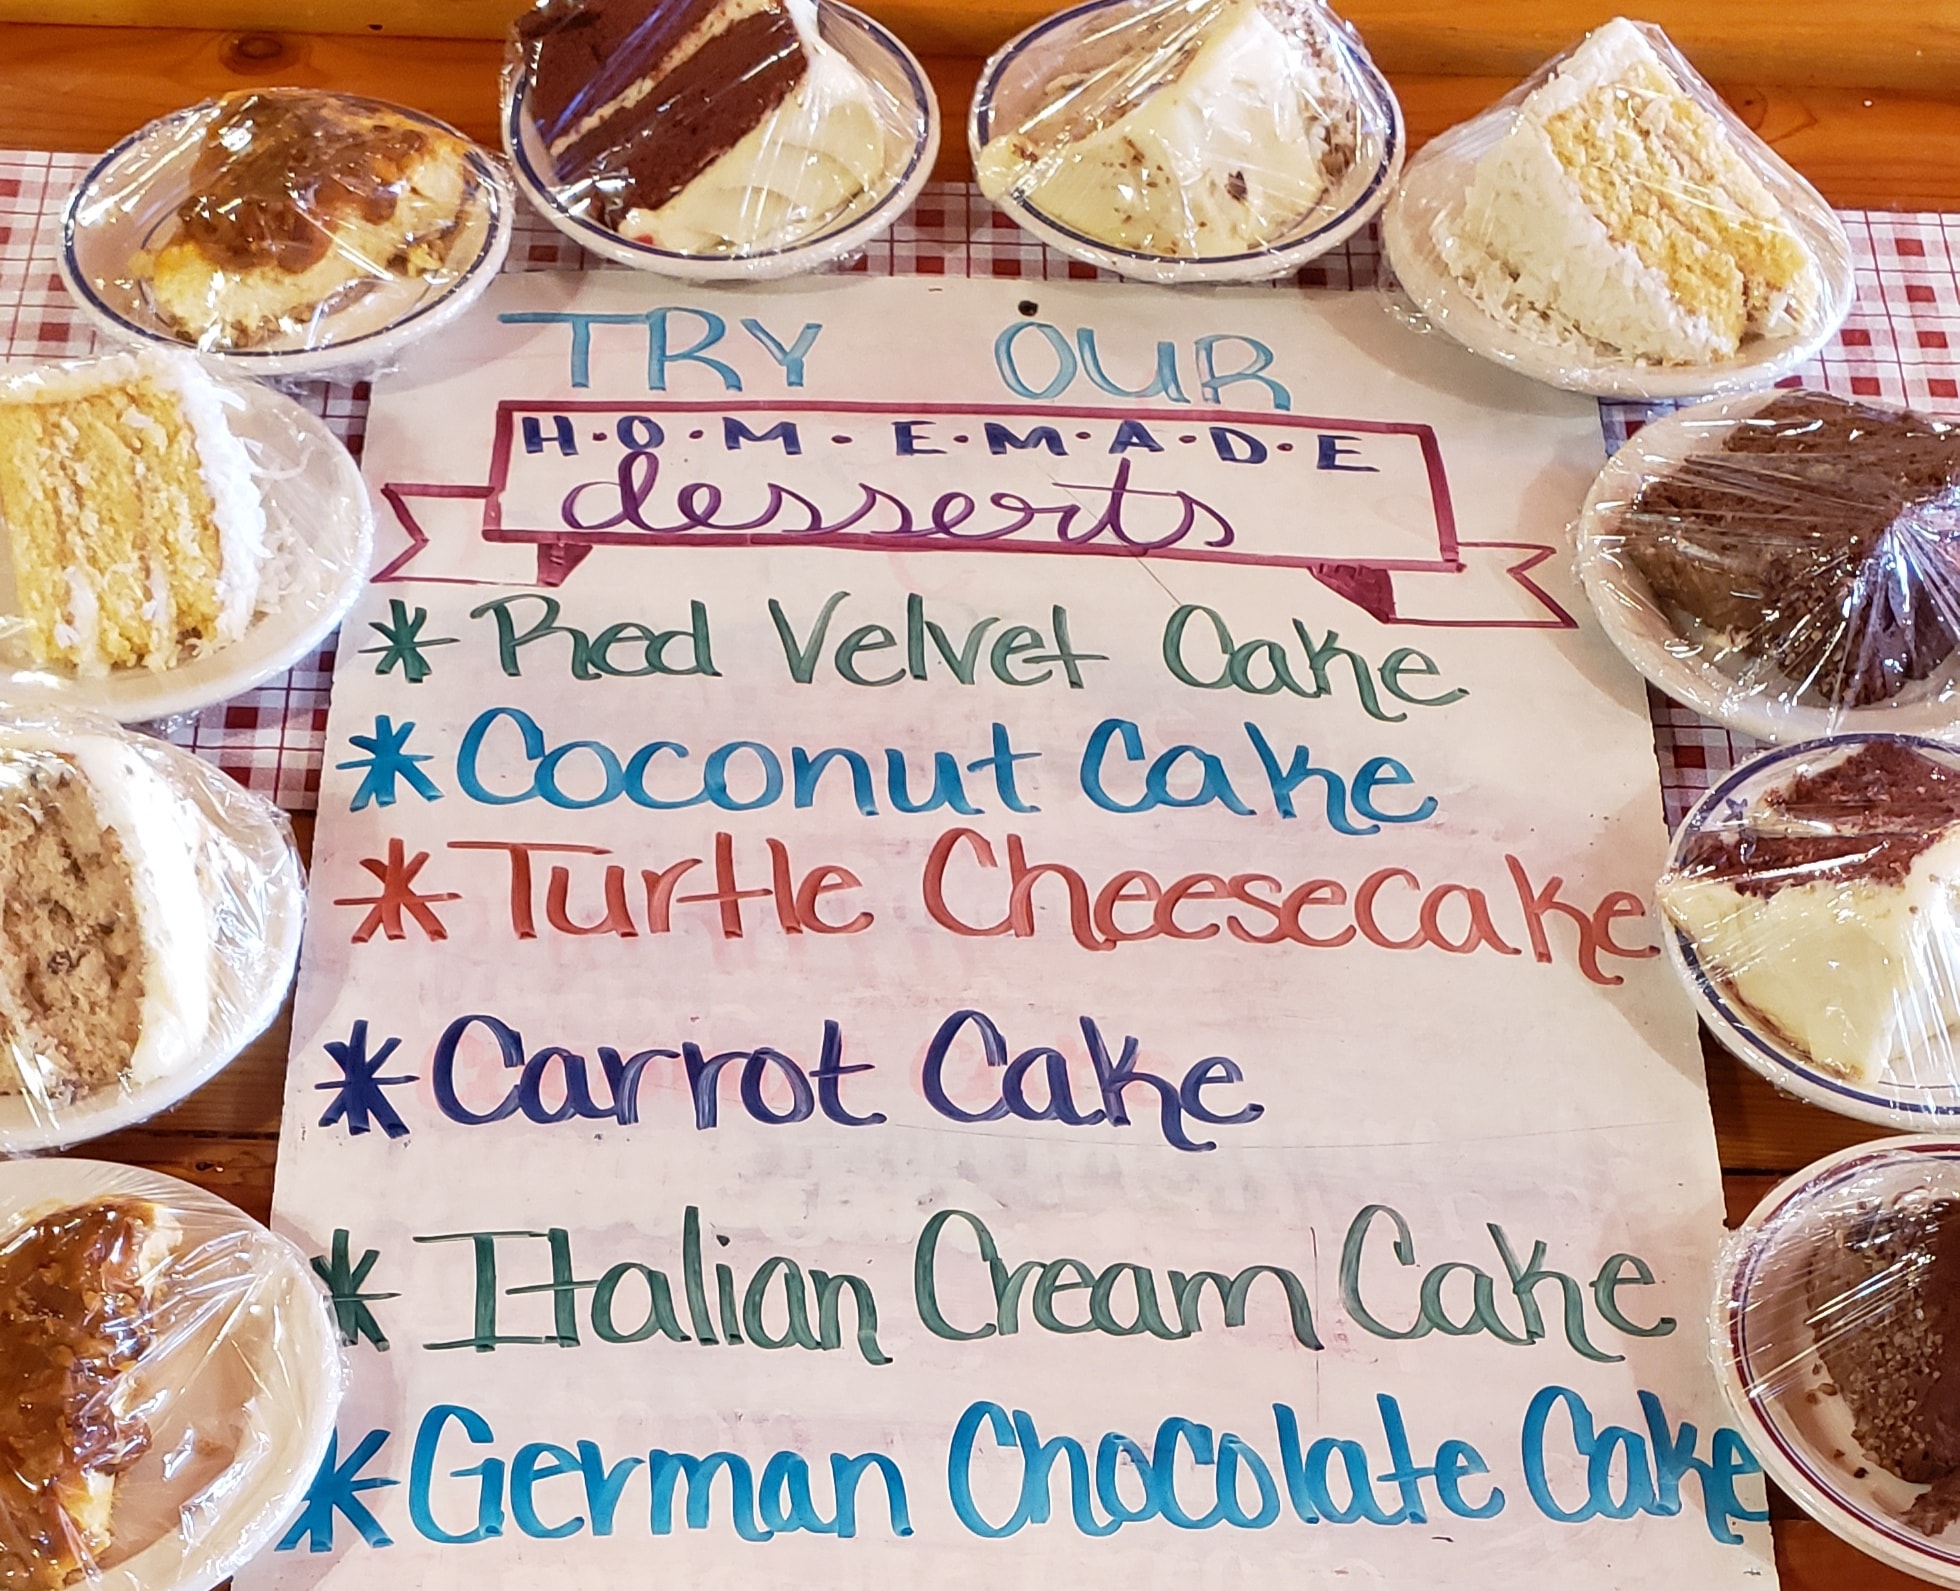 TRY OUR
H·O·M·E·M·A·D·E
desserts
* Red Velvet Cake
* Coconut Cake
* Turtle Cheesecake
* Carrot Cake
* Italian Cream Cake
* German Chocolate Cake